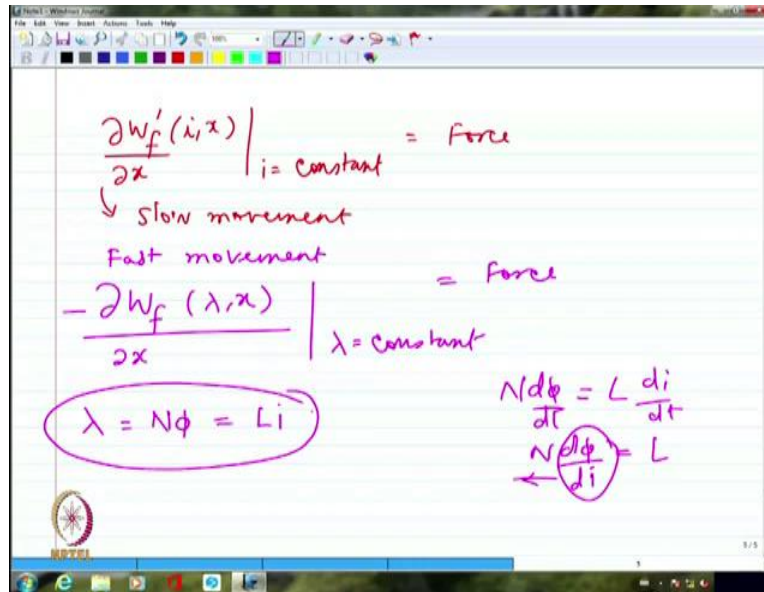 Note1 - Windows Journal
File Edit View Insert Actions Tools Help
100%
B I
∂W_f'(i, x) / ∂x | i = constant = Force
↳ Slow movement
Fast movement
- ∂W_f (λ, x) / ∂x | λ = constant = Force
λ = Nφ = Li
N dφ/dt = L di/dt
N dφ/di = L
NPTEL
5 / 5
5